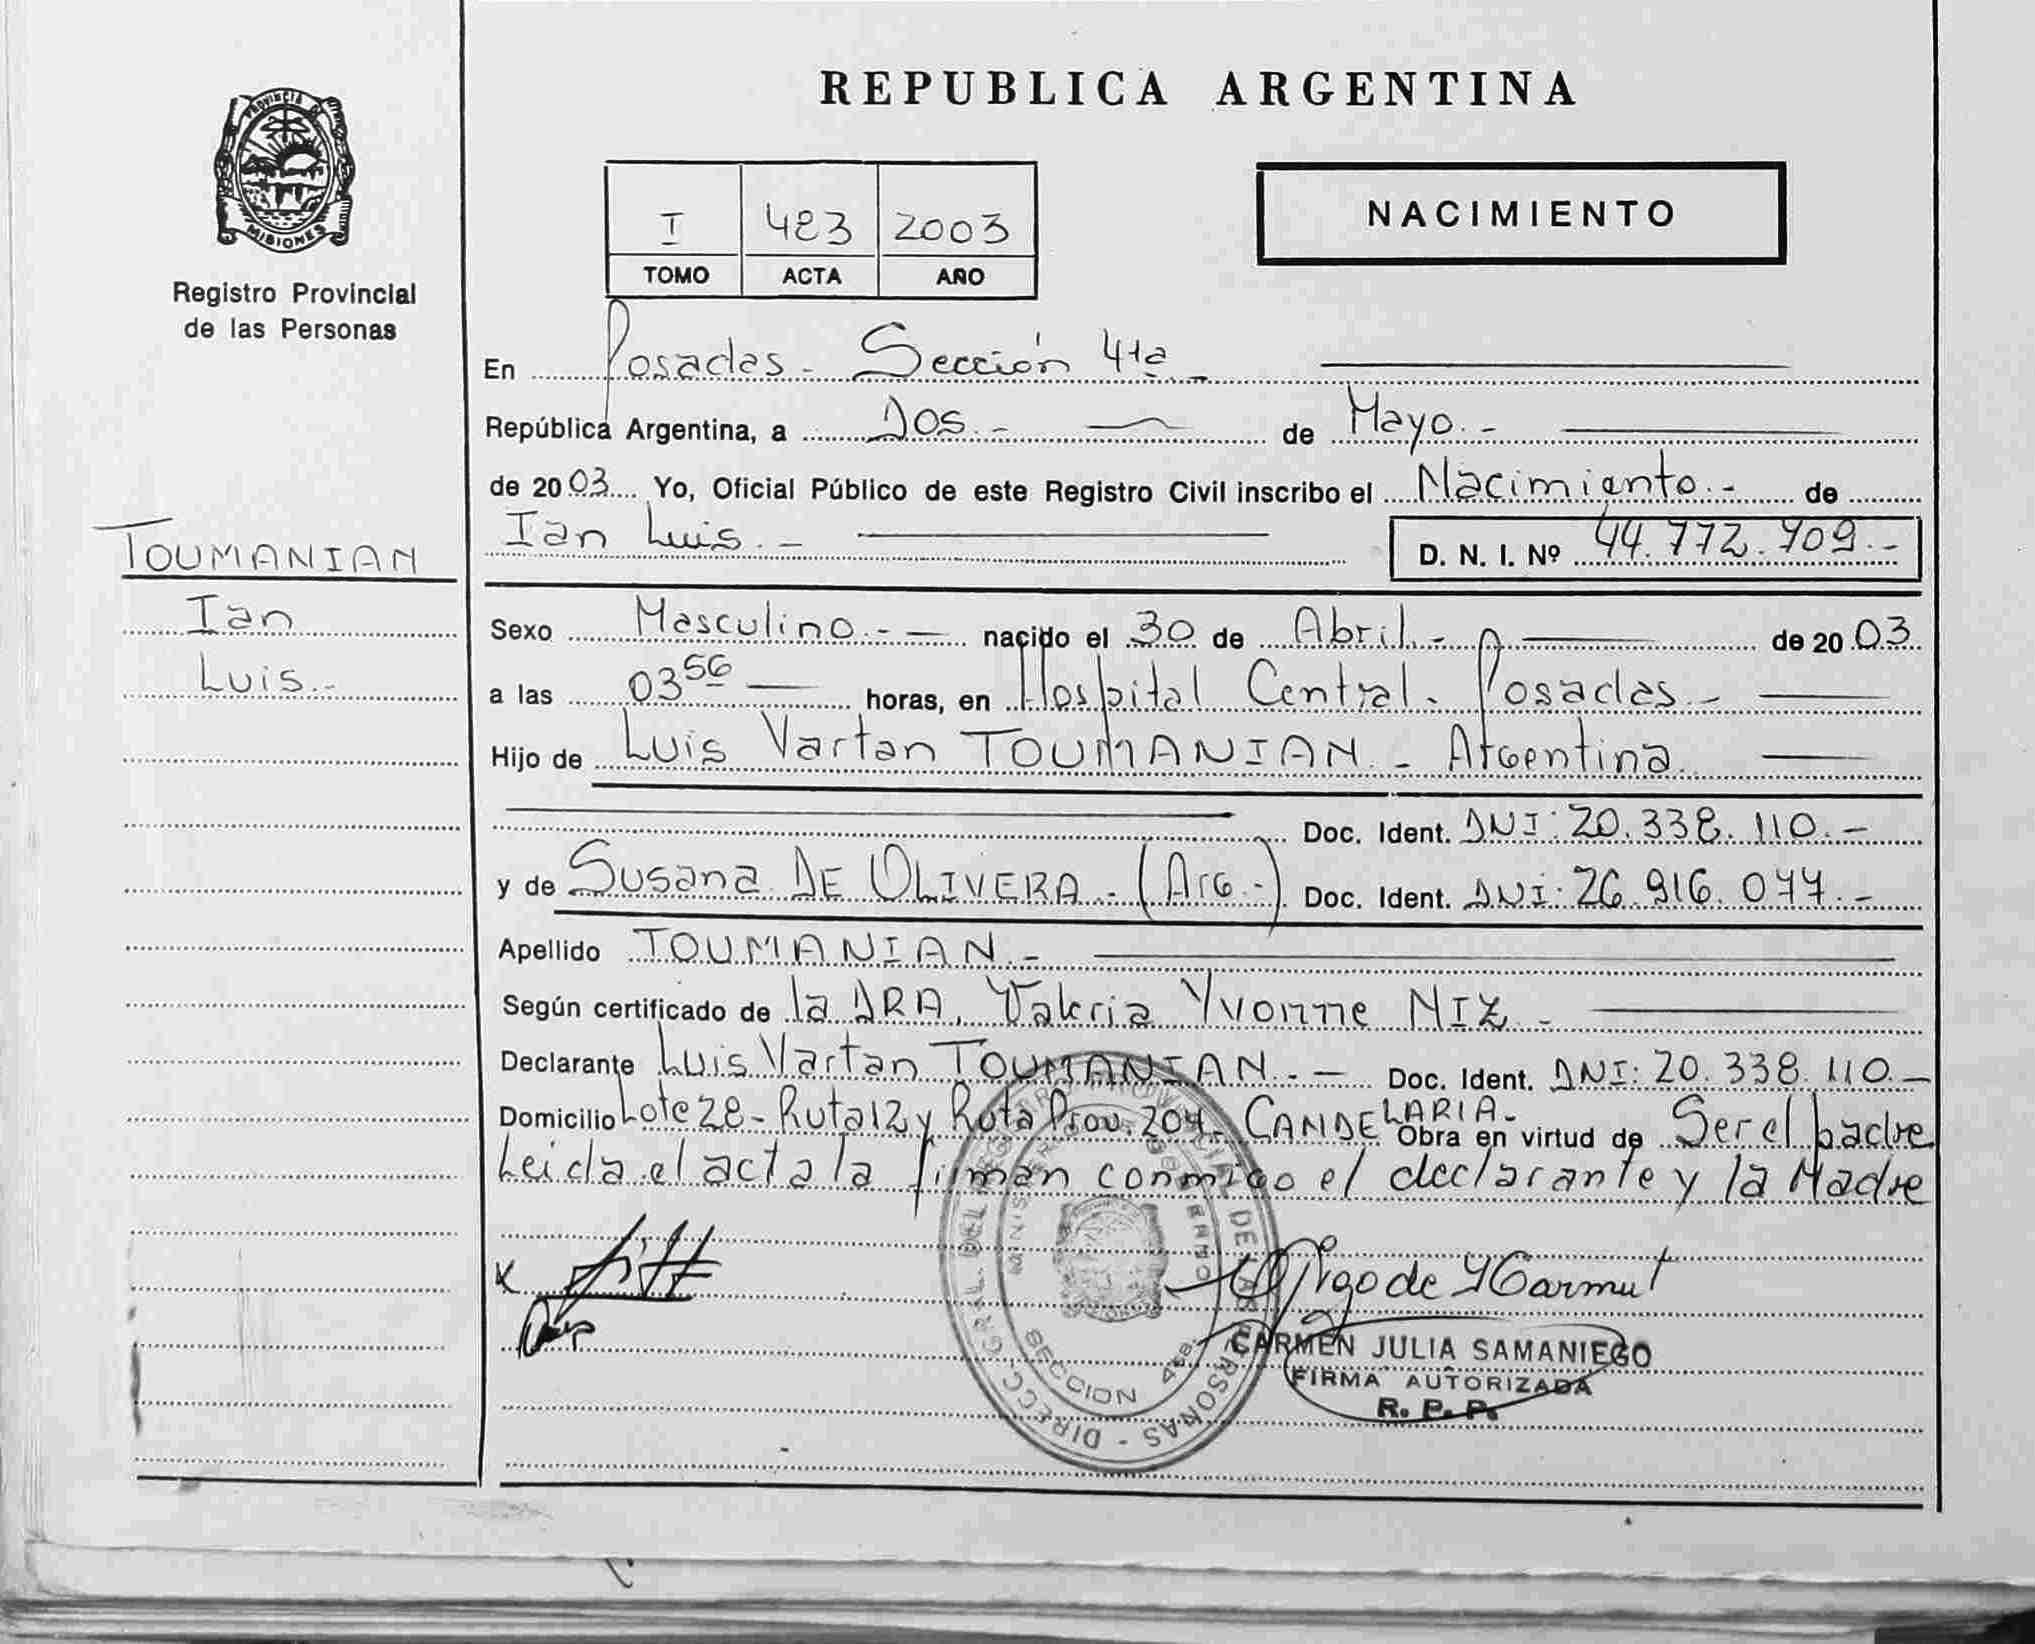 PROVINCIA DE
MISIONES
Registro Provincial
de las Personas
TOUMANIAN
Ian
Luis.-
REPUBLICA ARGENTINA
I 483 2003
TOMO ACTA AÑO
NACIMIENTO
En Posadas - Sección 4ta -
República Argentina, a Dos.- de Mayo.-
de 2003 Yo, Oficial Público de este Registro Civil inscribo el Nacimiento.- de
Ian Luis.- D. N. I. Nº 44.772.909.-
Sexo Masculino.- nacido el 30 de Abril.- de 2003
a las 03 56 horas, en Hospital Central. Posadas.-
Hijo de Luis Vartan TOUMANIAN - Argentina
Doc. Ident. DNI: 20.338.110.-
y de Susana DE OLIVERA.- (Arg.-) Doc. Ident. DNI: 26.916.077.-
Apellido TOUMANIAN.-
Según certificado de la DRA. Valeria Yvonne NIZ -
Declarante Luis Vartan TOUMANIAN.- Doc. Ident. DNI: 20.338.110.-
Domicilio Lote 28 - Ruta 12 y Ruta Prov. 204 - CANDELARIA - Obra en virtud de Ser el padre
Leida el acta la firman conmigo el declarante y la Madre
DIRECC. GRAL. DEL REGISTRO PROVINCIAL DE LAS PERSONAS -
MINISTERIO DE GOBIERNO
SECCION 4ta
CARMEN JULIA SAMANIEGO
FIRMA AUTORIZADA
R. P. P.